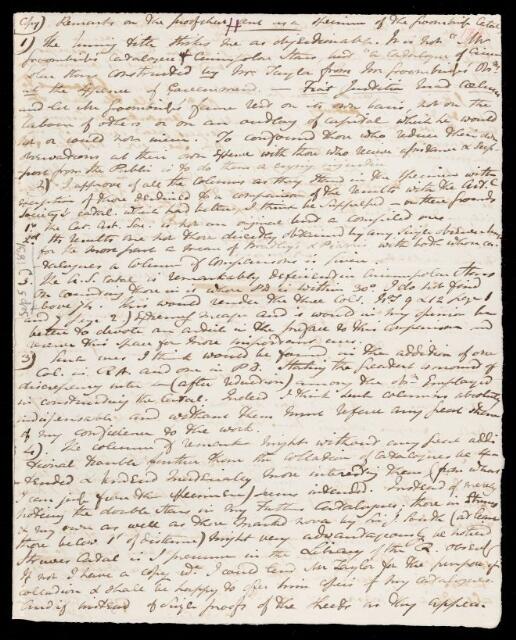 Copy) Remarks on the proofsheet sent as a specimen of the Groombridge Catal.
1) The running title strikes me as objectionable. It is not "Mr
Groombridge's Catalogue of Circumpolar Stars but "a Catalogue of Circum
polar Stars constructed by Mr Taylor from Mr Groombridge's Obsns
at the expense of Government. — Fiat Justitia ruat Coelum
and let Mr Groombridge's fame rest on its own basis, not on the
labour of others or on an outlay of capital which he would
not or could not incur. To confound those who reduce their own
observations at their own expense with those who receive assistance & sup
port from the Public is to do them a
2) I approve of all the columns as they stand in the specimen with
exception of those destined to a comparison of the results with the Ast.
Society's Catal. which had better I think be suppressed — on these grounds
1st The Cat. Ast. Soc. is not an original but a compiled one.
2nd Its results are not those directly obtained by any single observer being
for the most part a mean of Bradley's & Piazzi's with both whose ca-
talogues a column of comparisons is given.
3. The A.S. Catal. is remarkably deficient in circumpolar stars
On counting those in it where PD is within 30° I do not find
above This would render the three Cols. Nos 9 & 12 page 1
and page 2) extremely meagre and it would in my opinion be
better to devote an article in the preface to this comparison and
reserve this space for more important uses.
3) Such uses I think would be found in the addition of one
Col. in RA and one in PD. Stating the greatest amount of
discrepancy inter se (after reduction) among the obsns employed
in constructing the Catal. Indeed I think such columns absolutely
indispensable and without them must refuse any great share
of my confidence to the work.
4). The columns of remarks might without any great addi
tional trouble further than the collation of Catalogues be ex
tended & rendered materially more interesting than (from what
I can judge from the specimen) seems intended. Instead of merely
noticing the double stars in my Father's catalogues, those in Struve's
& my own as well as those marked nova by Sir J. South (at least
those below 1' of distance) might very advantageously be noticed
Struve's Catal is I presume in the Library of the R. Obsy
If not I have a copy wh. I could lend Mr Taylor for the purpose of
collation & shall be happy to offer him copies of my catalogues
and if instead of single proofs of the sheets as they appear.